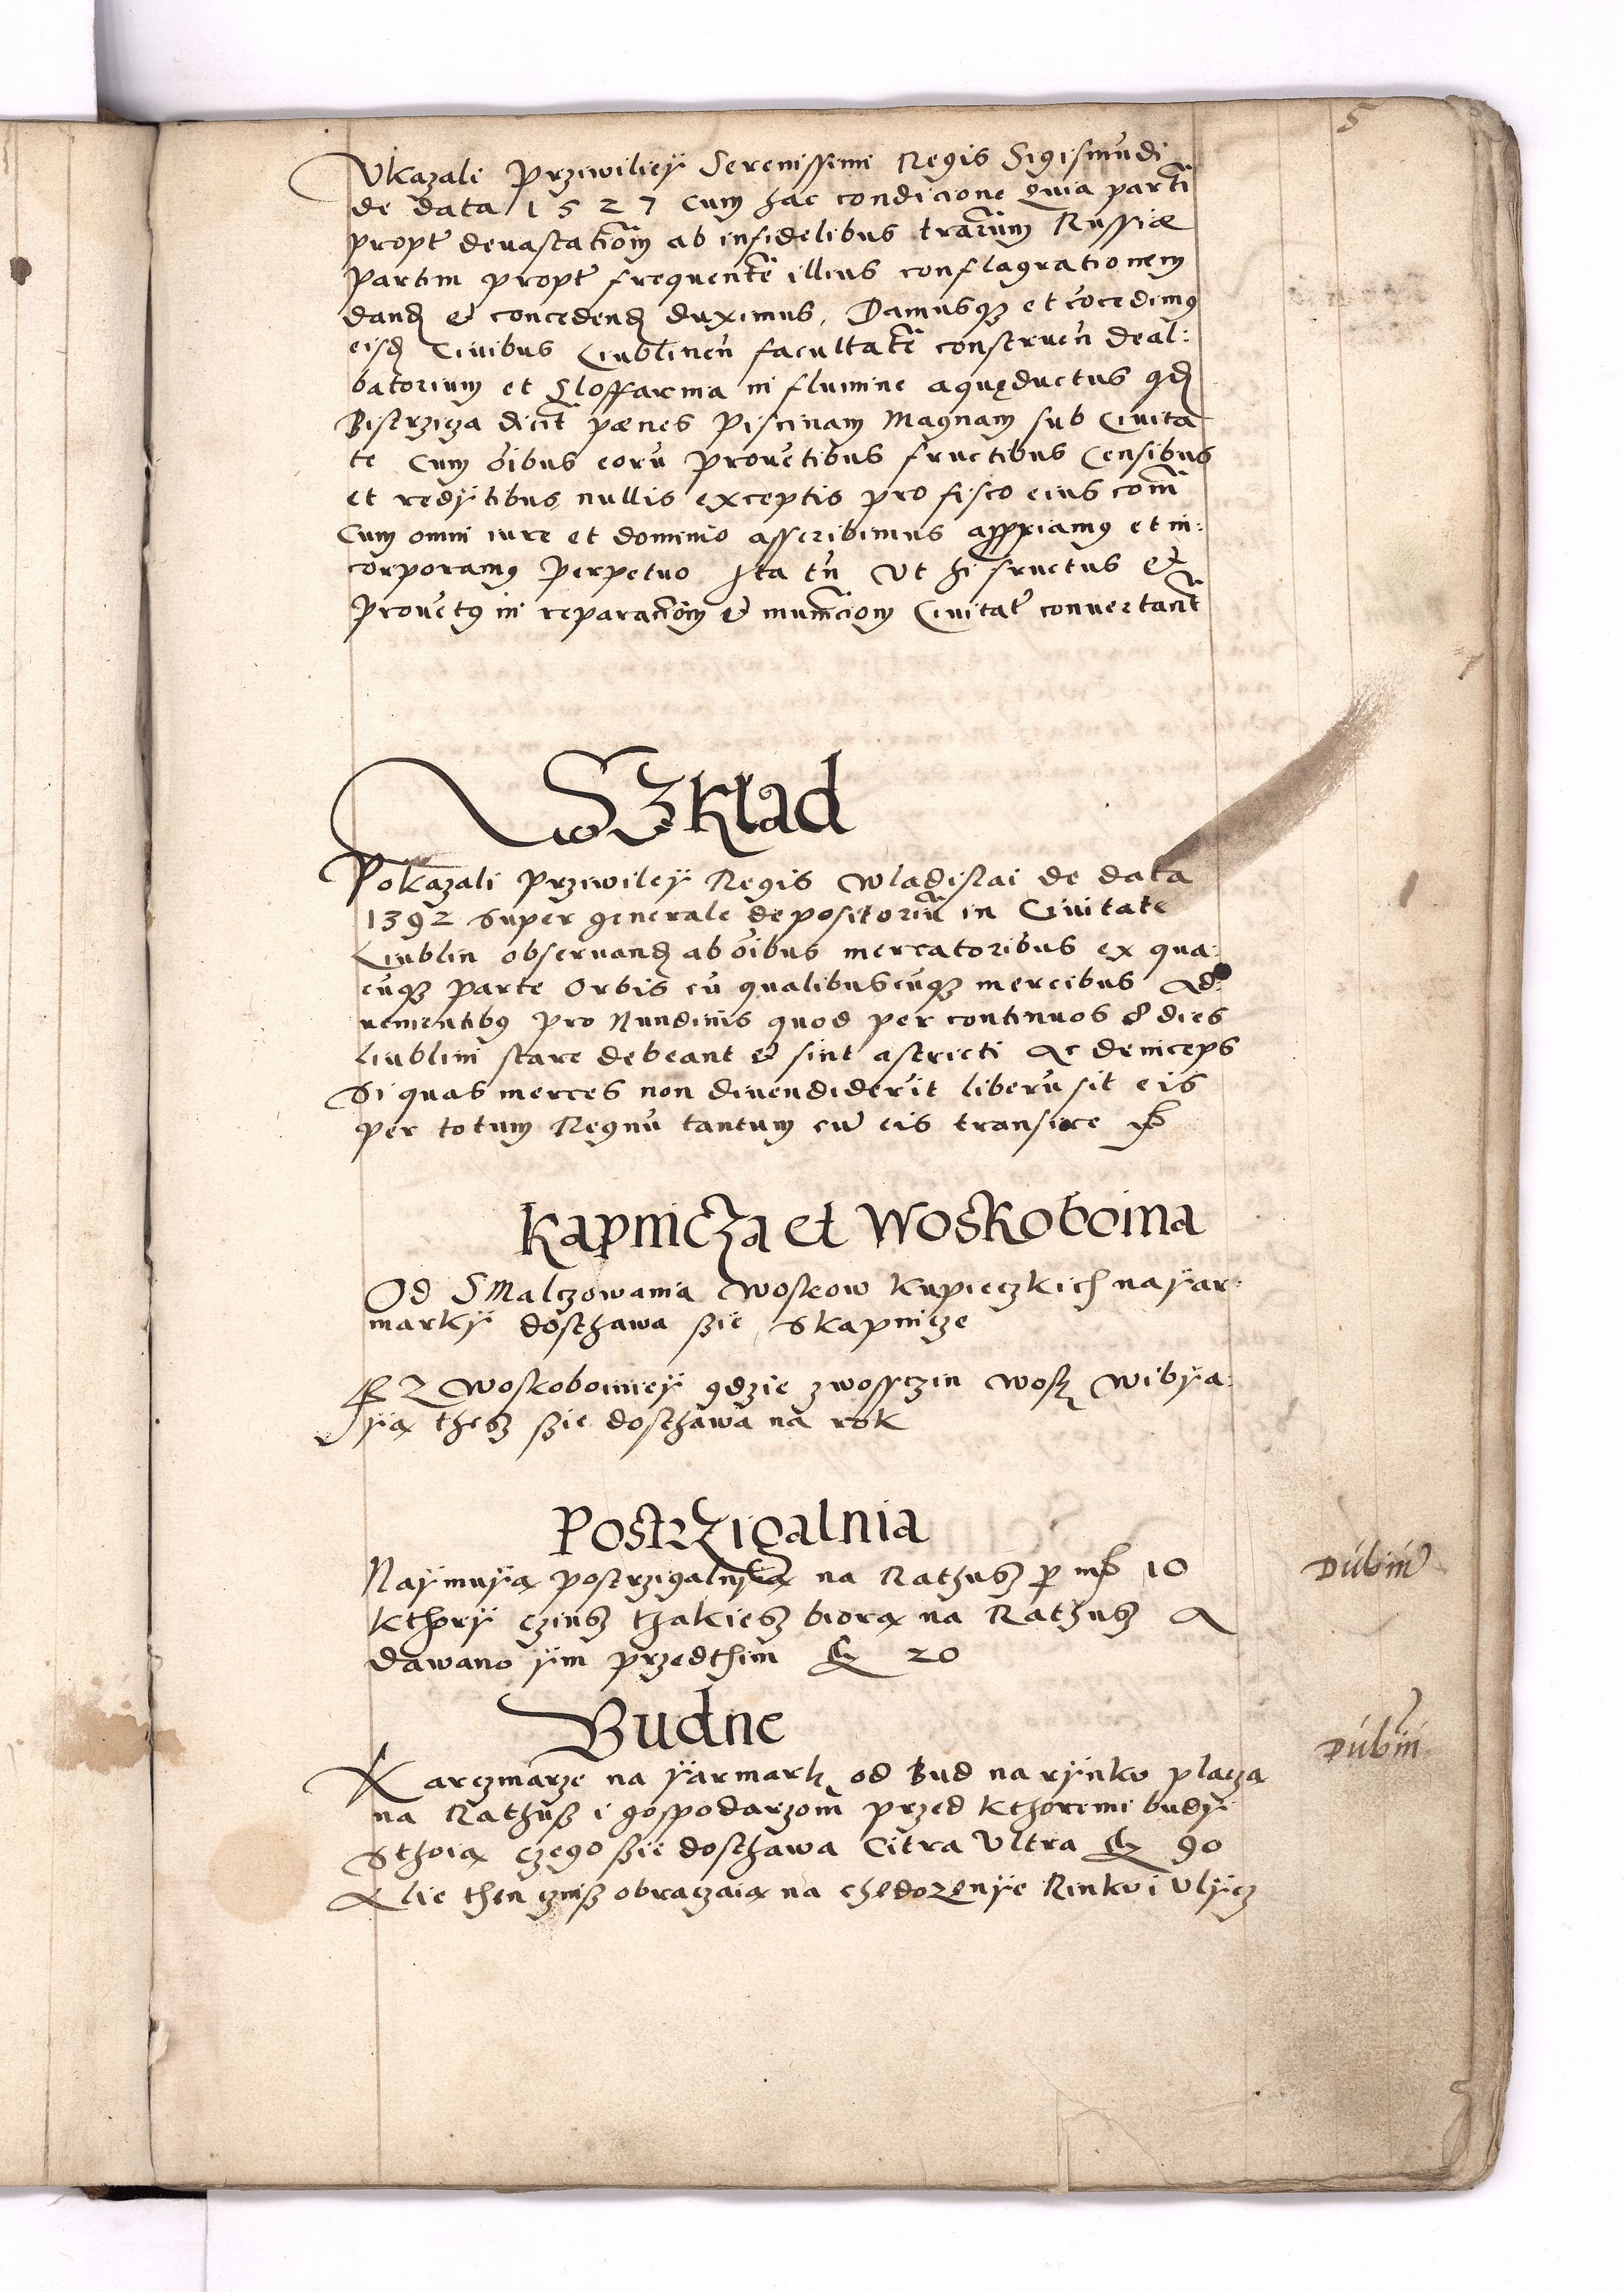 5
Vkazali Prziwiliey Serenissimi Regis Sigismūdi
de data 1527 cum hac condicione Quia partī
propt̄ devastatiōm ab infidelibus trarūm Russiæ
partim propt̄ frequentē illius conflagrationem
dand et concedend duximus, Damusqꝫ et cōcedimꝰ
eisd Civibus Lublinen̄ facultatē construen̄ deal:
batorium et Sloffarnia in flumine aquęductus qd
Bistrzicza dicit̄ pænes Piscinam Magnam sub Civita
te Cum ōibus eorū provētibus fructibus Censibus
et redytibus nullis exceptis pro fisco eius com̄
Cum omni iure et dominio asscribimus appriamꝰ et in:
corporamꝰ perpetuo Ita tn̄ Vt hi fructus et
provētꝰ in reparatiōm et municiom Civitat̄ convertant̄
Szklad
Pokazali Prziwiley Regis Wladislai de data
1392 super generale depositoriū in Civitate
Lublin observand ab ōibus mercatoribus ex qua:
cūqꝫ parte Orbis cū qualibuscūqꝫ mercibus Ad:
venientibꝰ pro Nundinis quod per continuos 8 dies
Liublini stare debeant et sint astricti Ac deinceps
Si quas merces non divendiderit liberū sit eis
per totum Regnū tantum cū eis transire
Kapnicza et Woskoboina
Od Smalczowania Woskow Kupieczkich na yar:
marky dosthawa szie Skapnicze
Z Woskoboiniey gdzie zwosczin wosk wibya:
yą thesz szie dosthawa na rok
Postrzigalnia
Naymuyą postrzigalnyką na Rathusz p mr 10
Kthory czinsz thakiesz biorą na Rathusz A
dawano ym przedthim 20
Dubiū
Budne
Karczmarze na yarmark od Bud na rynku placza
na Rathusz i gospodarzom przed Kthoremi budy
Sthoią czego szie dosthawa Citra Vltra 90
Alie then czinsz obraczaią na chędozenye Rinku i Vlycz
Dubiū